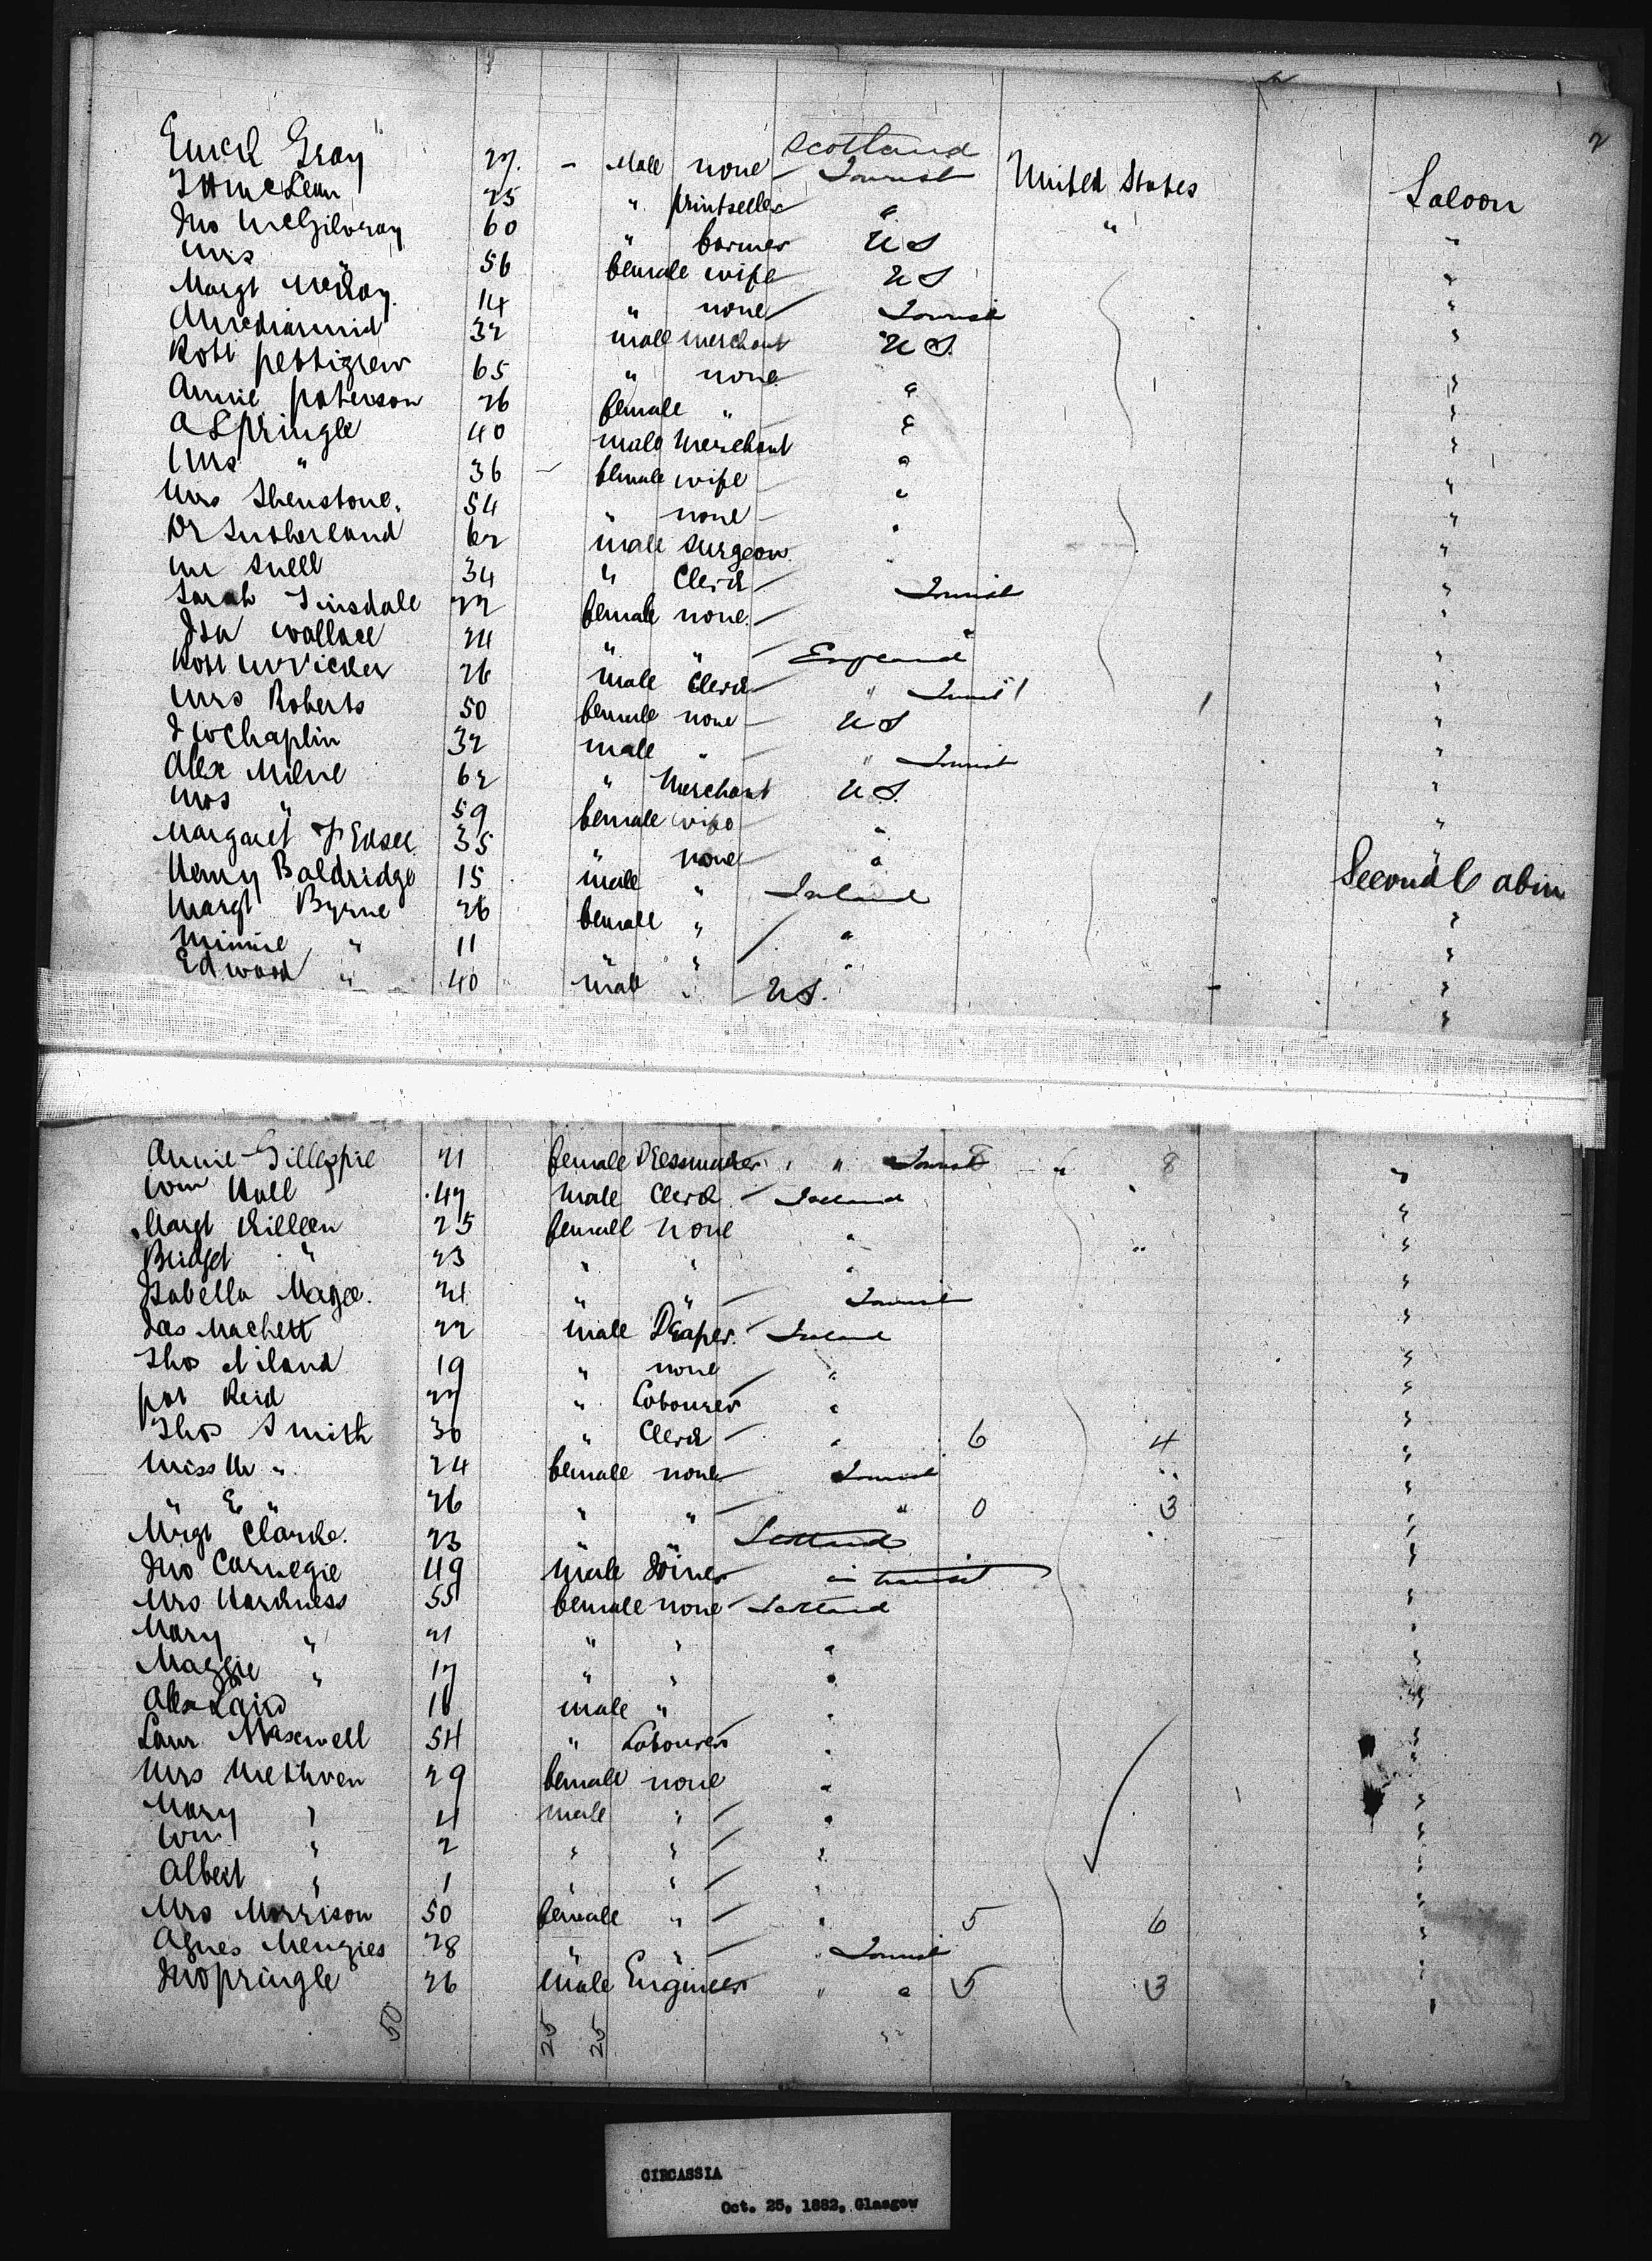 2
Gray 27. - Male none Scotland Tourist United States Saloon
McLean 25 " printseller " " "
Jno McGilvray 60 " farmer US "
Mrs " 56 female wife US "
Margt McKay. 14 " none Tourist "
A McDiarmid 32 male merchant US. "
Robt pettigrew 65 " none " "
Annie paterson 26 female " " "
A S pringle 40 male Merchant " "
Mrs " 36 - female wife " "
Mrs Shenstone. 54 " none " "
Dr Sutherland 62 male surgeon " "
Mr Snell 34 " Clerk "
Sarah Tinsdale 22 female none. Tourist "
Isa Wallace 24 " " England " "
Robt McVicker 26 male Clerk " Tourist "
Mrs Roberts 50 female none US "
J W Chaplin 32 male " " Tourist "
Alex Milne 62 " Merchant US. "
Mrs " 59 female wife " "
Margaret 35 " none " "
Henry Baldridge 15 male " Ireland Second Cabin
Margt Byrne 26 female " " "
Minnie " 11 " " " "
Edward " 40 male " US. "
Annie Gillespie 21 female Dressmaker " " Tourist 8 " 8 "
Wm Hall 47 male Clerk Ireland "
Margt Killeen 25 female none " "
Bridget " 23 " " " "
Isabella Magee. 24 " " Tourist "
Jas Machett 22 male Draper. Ireland "
Thos Niland 19 " none " "
pat Reid 27 " Labourer " "
Thos Smith 30 " Clerk " 6 4 "
Miss M " 24 female none Tourist "
" E " 26 " " " 0 3 "
Margt Clarke. 23 " " Scotland "
Jno Carnegie 49 male Joiner in transit "
Mrs Harkness 55 female none Scotland "
Mary " 21 " " " "
Maggie " 17 " " " "
Alex Laird 16 male " " "
Laur Maxwell 54 " Labourer " "
Mrs Methven 29 female none " "
Mary " 4 male " " "
Wm " 2 " " " "
Albert " 1 " " " "
Mrs Morrison 50 female " " 5 6 "
Agnes Menzies 28 " " " Tourist "
Jno pringle 26 male Engineer " " 5 3 "
50 25 25
CIRCASSIA
Oct. 25, 1882, Glasgow